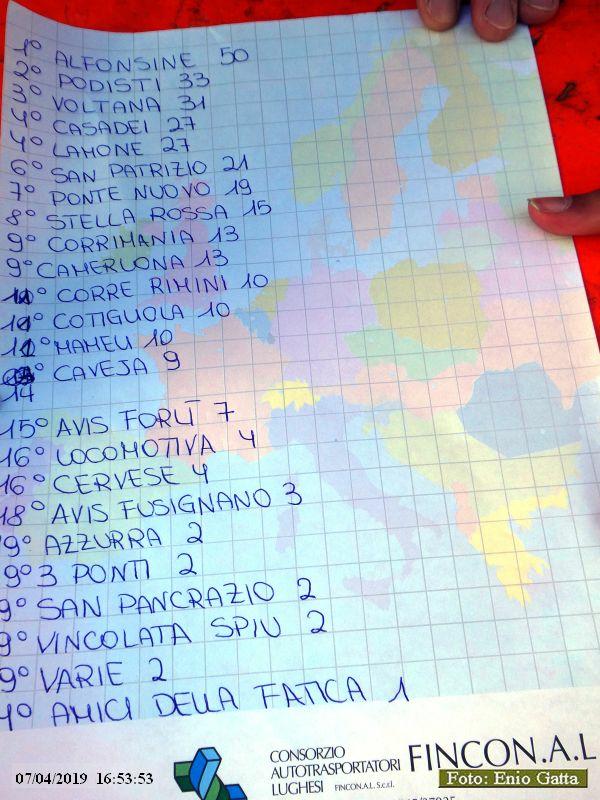 1° ALFONSINE 50
2° PODISTI 33
3° VOLTANA 31
4° CASADEI 27
4° LAMONE 27
6° SAN PATRIZIO 21
7° PONTE NUOVO 19
8° STELLA ROSSA 15
9° CORRIMANIA 13
9° CAMERLONA 13
11° CORRE RIMINI 10
11° COTIGUOLA 10
11° MAMELI 10
CAVEJA 9
14
15° AVIS FORLÌ 7
16° LOCOMOTIVA 4
16° CERVESE 4
18° AVIS FUSIGNANO 3
9° AZZURRA 2
9° 3 PONTI 2
9° SAN PANCRAZIO 2
9° VINCOLATA SPIU 2
9° VARIE 2
4° AMICI DELLA FATICA 1
CONSORZIO
AUTOTRASPORTATORI
LUGHESI FINCON.A.L. S.c.r.l.
FINCON.A.L
07/04/2019 16:53:53
Foto: Enio Gatta